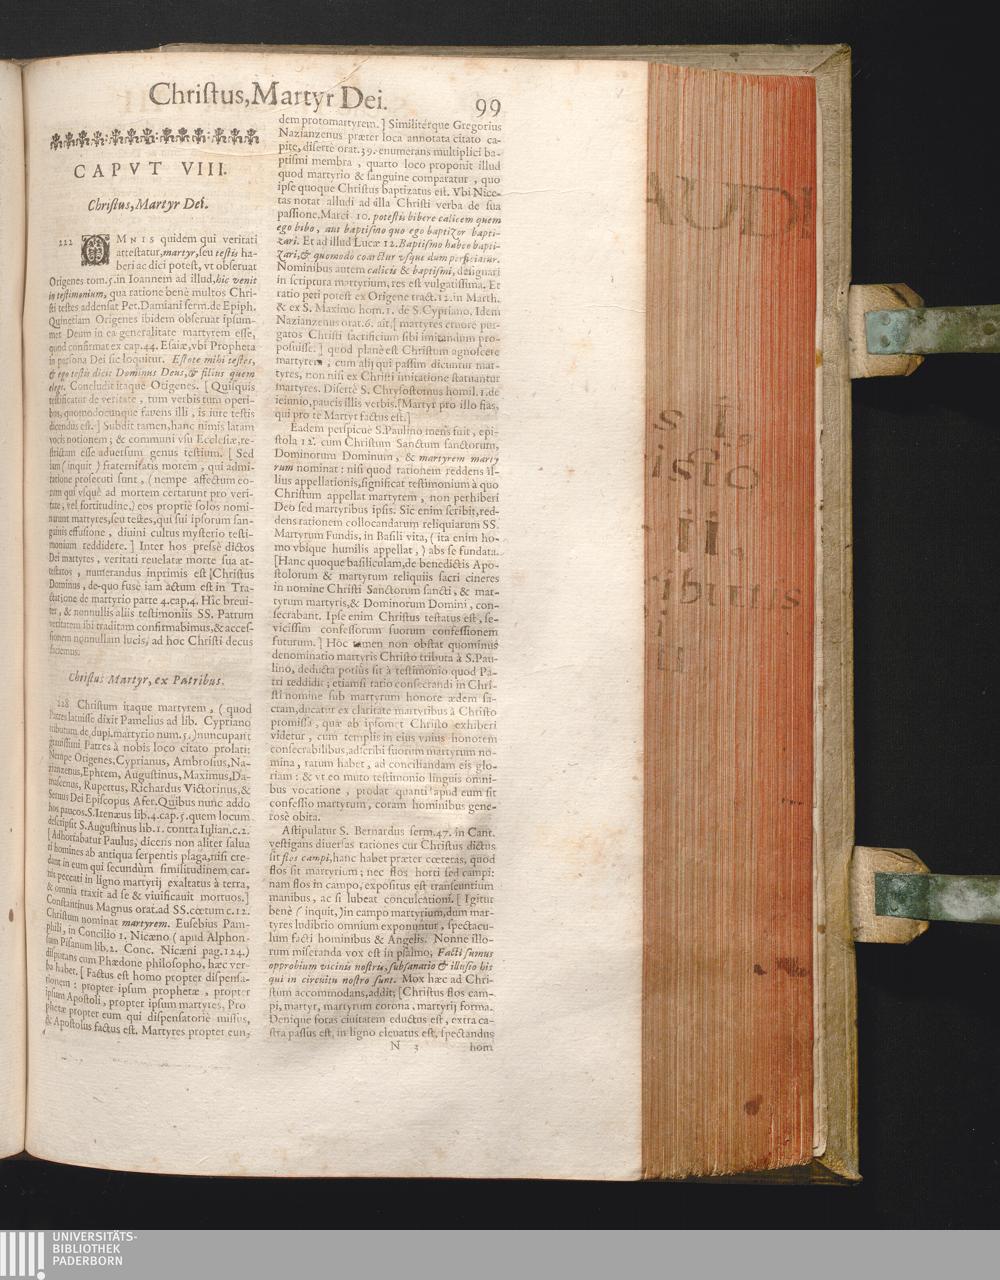 Christus, Martyr Dei.
99
CAPVT VIII.
Christus, Martyr Dei.
OMNIS quidem qui veritati
attestatur, martyr, seu testis ha-
beri ac dici potest, vt obseruat
Origenes tom.5.in Ioannem ad illud, hic venit
in testimonium, qua ratione benè multos Chri-
sti testes addensat Pet.Damiani serm.de Epiph.
Quinetiam Origenes ibidem obseruat ipsum-
met Deum in ea generalitate martyrem esse,
quod confirmat ex cap.44. Esaiæ, vbi Propheta
in persona Dei sic loquitur. Estote mihi testes,
& ego testis dicit Dominus Deus, & filius quem
elegi. Concludit itaque Origenes. [ Quisquis
testificatur de veritate , tum verbis tum operi-
bus, quomodocunque fauens illi , is iure testis
dicendus est.] Subdit tamen, hanc nimis latam
vocis notionem ; & communi vsu Ecclesiæ, re-
strictam esse aduersum genus testium. [ Sed
iam ( inquit ) fraternitatis morem , qui admi-
ratione prosecuti sunt , ( nempe affectum eo-
rum qui vsquè ad mortem certarunt pro veri-
tate, vel fortitudine,) eos propriè solos nomi-
narunt martyres, seu testes, qui sui ipsorum san-
guinis effusione , diuini cultus mysterio testi-
monium reddidere. ] Inter hos pressè dictos
Dei martyres , veritati reuelatæ morte sua at-
testatos , numerandus inprimis est [Christus
Dominus, de-quo fusè iam actum est in Tra-
ctatione de martyrio parte 4.cap.4. Hìc breui-
ter, & nonnullis aliis testimoniis SS. Patrum
veritatem ibi traditam confirmabimus, & acces-
sionem nonnullam lucis, ad hoc Christi decus
faciemus.
Christus Martyr, ex Patribus.
Christum itaque martyrem , ( quod
Patres latuisse dixit Pamelius ad lib. Cypriano
tributum de dupl.martyrio num.5.) nuncuparit
grauissimi Patres à nobis loco citato prolati:
Nempe Origenes, Cyprianus, Ambrosius, Na-
zianzenus, Ephrem, Augustinus, Maximus, Da-
mascenus, Rupertus, Richardus Victorinus, &
Seruus Dei Episcopus Afer. Quibus nunc addo
hos paucos. S.Irenæus lib.4.cap.5.quem locum
descripsit S.Augustinus lib.1. contra Iulian.c.2.
[ Adhortabatur Paulus, dicens non aliter salua
ri homines ab antiqua serpentis plaga, nisi cre-
dant in eum qui secundùm similitudinem car-
nis peccati in ligno martyrij exaltatus à terra,
& omnia traxit ad se & viuificauit mortuos.]
Constantinus Magnus orat.ad SS.cœtum c.12.
Christum nominat martyrem. Eusebius Pam-
phili, in Concilio 1. Nicæno ( apud Alphon-
sum Pisanum lib.2. Conc. Nicæni pag.124.)
disputans cum Phædone philosopho, hæc ver-
ba habet. [ Factus est homo propter dispensa-
tionem : propter ipsum prophetæ , propter
ipsum Apostoli , propter ipsum martyres. Pro
phetæ propter eum qui dispensatoriè missus,
& Apostolus factus est. Martyres propter eun-
dem protomartyrem. ] Similitérque Gregorius
Nazianzenus præter loca annotata citato ca-
pite, disertè orat.39. enumerans multiplici ba-
ptismi membra , quarto loco proponit illud
quod martyrio & sanguine comparatur , quo
ipse quoque Christus baptizatus est. Vbi Nice-
tas notat alludi ad illa Christi verba de sua
passione. Marci 10. potestis bibere calicem quem
ego bibo, aut baptismo quo ego baptizor bapti-
zari. Et ad illud Lucæ 12. Baptismo habeo bapti-
zari, & quomodo coarctor vsque dum perficiatur.
Nominibus autem calicis & baptismi, designari
in scriptura martyrium, res est vulgatissima. Et
ratio peti potest ex Origene tract.12.in Matth.
& ex S. Maximo hom.1. de S.Cypriano. Idem
Nazianzenus orat.6. ait, [ martyres cruore pur-
gatos Christi sacrificium sibi imitandum pro-
posuisse. ] quod planè est Christum agnoscere
martyrem , cum alij qui passim dicuntur mar-
tyres, non nisi ex Christi imitatione statuantur
martyres. Disertè S. Chrysostomus homil.1.de
ieiunio, paucis illis verbis. [Martyr pro illo fias,
qui pro te Martyr factus est.]
Eadem perspicuè S.Paulino mens fuit , epi-
stola 12. cum Christum Sanctum sanctorum,
Dominorum Dominum , & martyrem marty
rum nominat : nisi quod rationem reddens il-
lius appellationis, significat testimonium à quo
Christum appellat martyrem , non perhiberi
Deo sed martyribus ipsis. Sic enim scribit, red-
dens rationem collocandarum reliquiarum SS.
Martyrum Fundis, in Basili vita, ( ita enim ho-
mo vbique humilis appellat , ) abs se fundata.
[Hanc quoque basiliculam, de benedictis Apo-
stolorum & martyrum reliquiis sacri cineres
in nomine Christi Sanctorum sancti , & mar-
tyrum martyris, & Dominorum Domini , con-
secrabant. Ipse enim Christus testatus est , se-
vicissim confessorum suorum confessionem
futurum. ] Hoc tamen non obstat quominus
denominatio martyris Christo tributa à S.Pau-
lino, deducta potiùs sit à testimonio quod Pa-
tri reddidit ; etiamsi ratio consecrandi in Chri-
sti nomine sub martyrum honore ædem sa-
ctam, ducatur ex claritate martyribus à Christo
promissa , quæ ab ipsomet Christo exhiberi
videtur , cum templis in eius vnius honorem
consecrabilibus, adscribi suorum martyrum no-
mina , ratum habet , ad conciliandam eis glo-
riam : & vt eo muto testimonio linguis omni-
bus vocatione , prodat quanti apud eum sit
confessio martyrum , coram hominibus gene-
rosè obita.
Astipulatur S. Bernardus serm.47. in Cant.
vestigans diuersas rationes cur Christus dictus
sit flos campi, hanc habet præter cœteras, quod
flos sit martyrium ; nec flos horti sed campi:
nam flos in campo, expositus est transeuntium
manibus , ac si lubeat conculcationi. [ Igitur
benè ( inquit,) in campo martyrium, dum mar-
tyres ludibrio omnium exponuntur , spectacu-
lum facti hominibus & Angelis. Nonne illo-
rum miseranda vox est in psalmo, Facti sumus
opprobium vicinis nostris, subsanatio & illusio his
qui in circuitu nostro sunt. Mox hæc ad Chri-
stum accommodans, addit; [Christus flos cam-
pi, martyr, martyrum corona, martyrij forma.
Denique foras ciuitatem eductus est , extra ca-
stra passus est, in ligno eleuatus est, spectandus
N 3
hom
UNIVERSITÄTS-
BIBLIOTHEK
PADERBORN